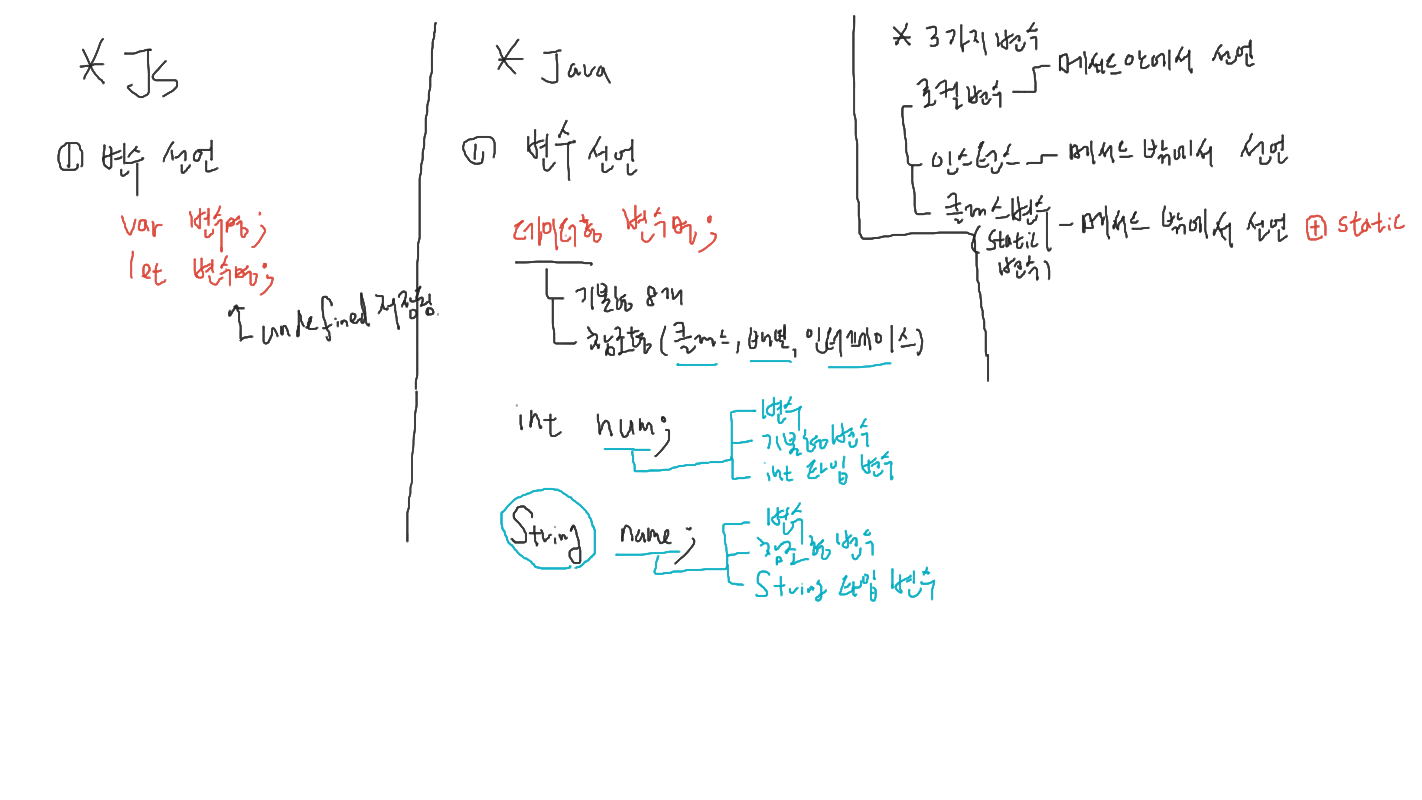 * JS
① 변수 선언
var 변수명;
let 변수명;
undefined 저장됨.
* Java
① 변수 선언
데이터형 변수명;
기본형 8개
참조형 (클래스, 배열, 인터페이스)
int num;
변수
기본형 변수
int 타입 변수
String name;
변수
참조형 변수
String 타입 변수
* 3가지 변수
로컬 변수 메서드 안에서 선언
인스턴스 - 메서드 밖에서 선언
클래스변수 - 메서드 밖에서 선언 ⊕ static
(static
변수)